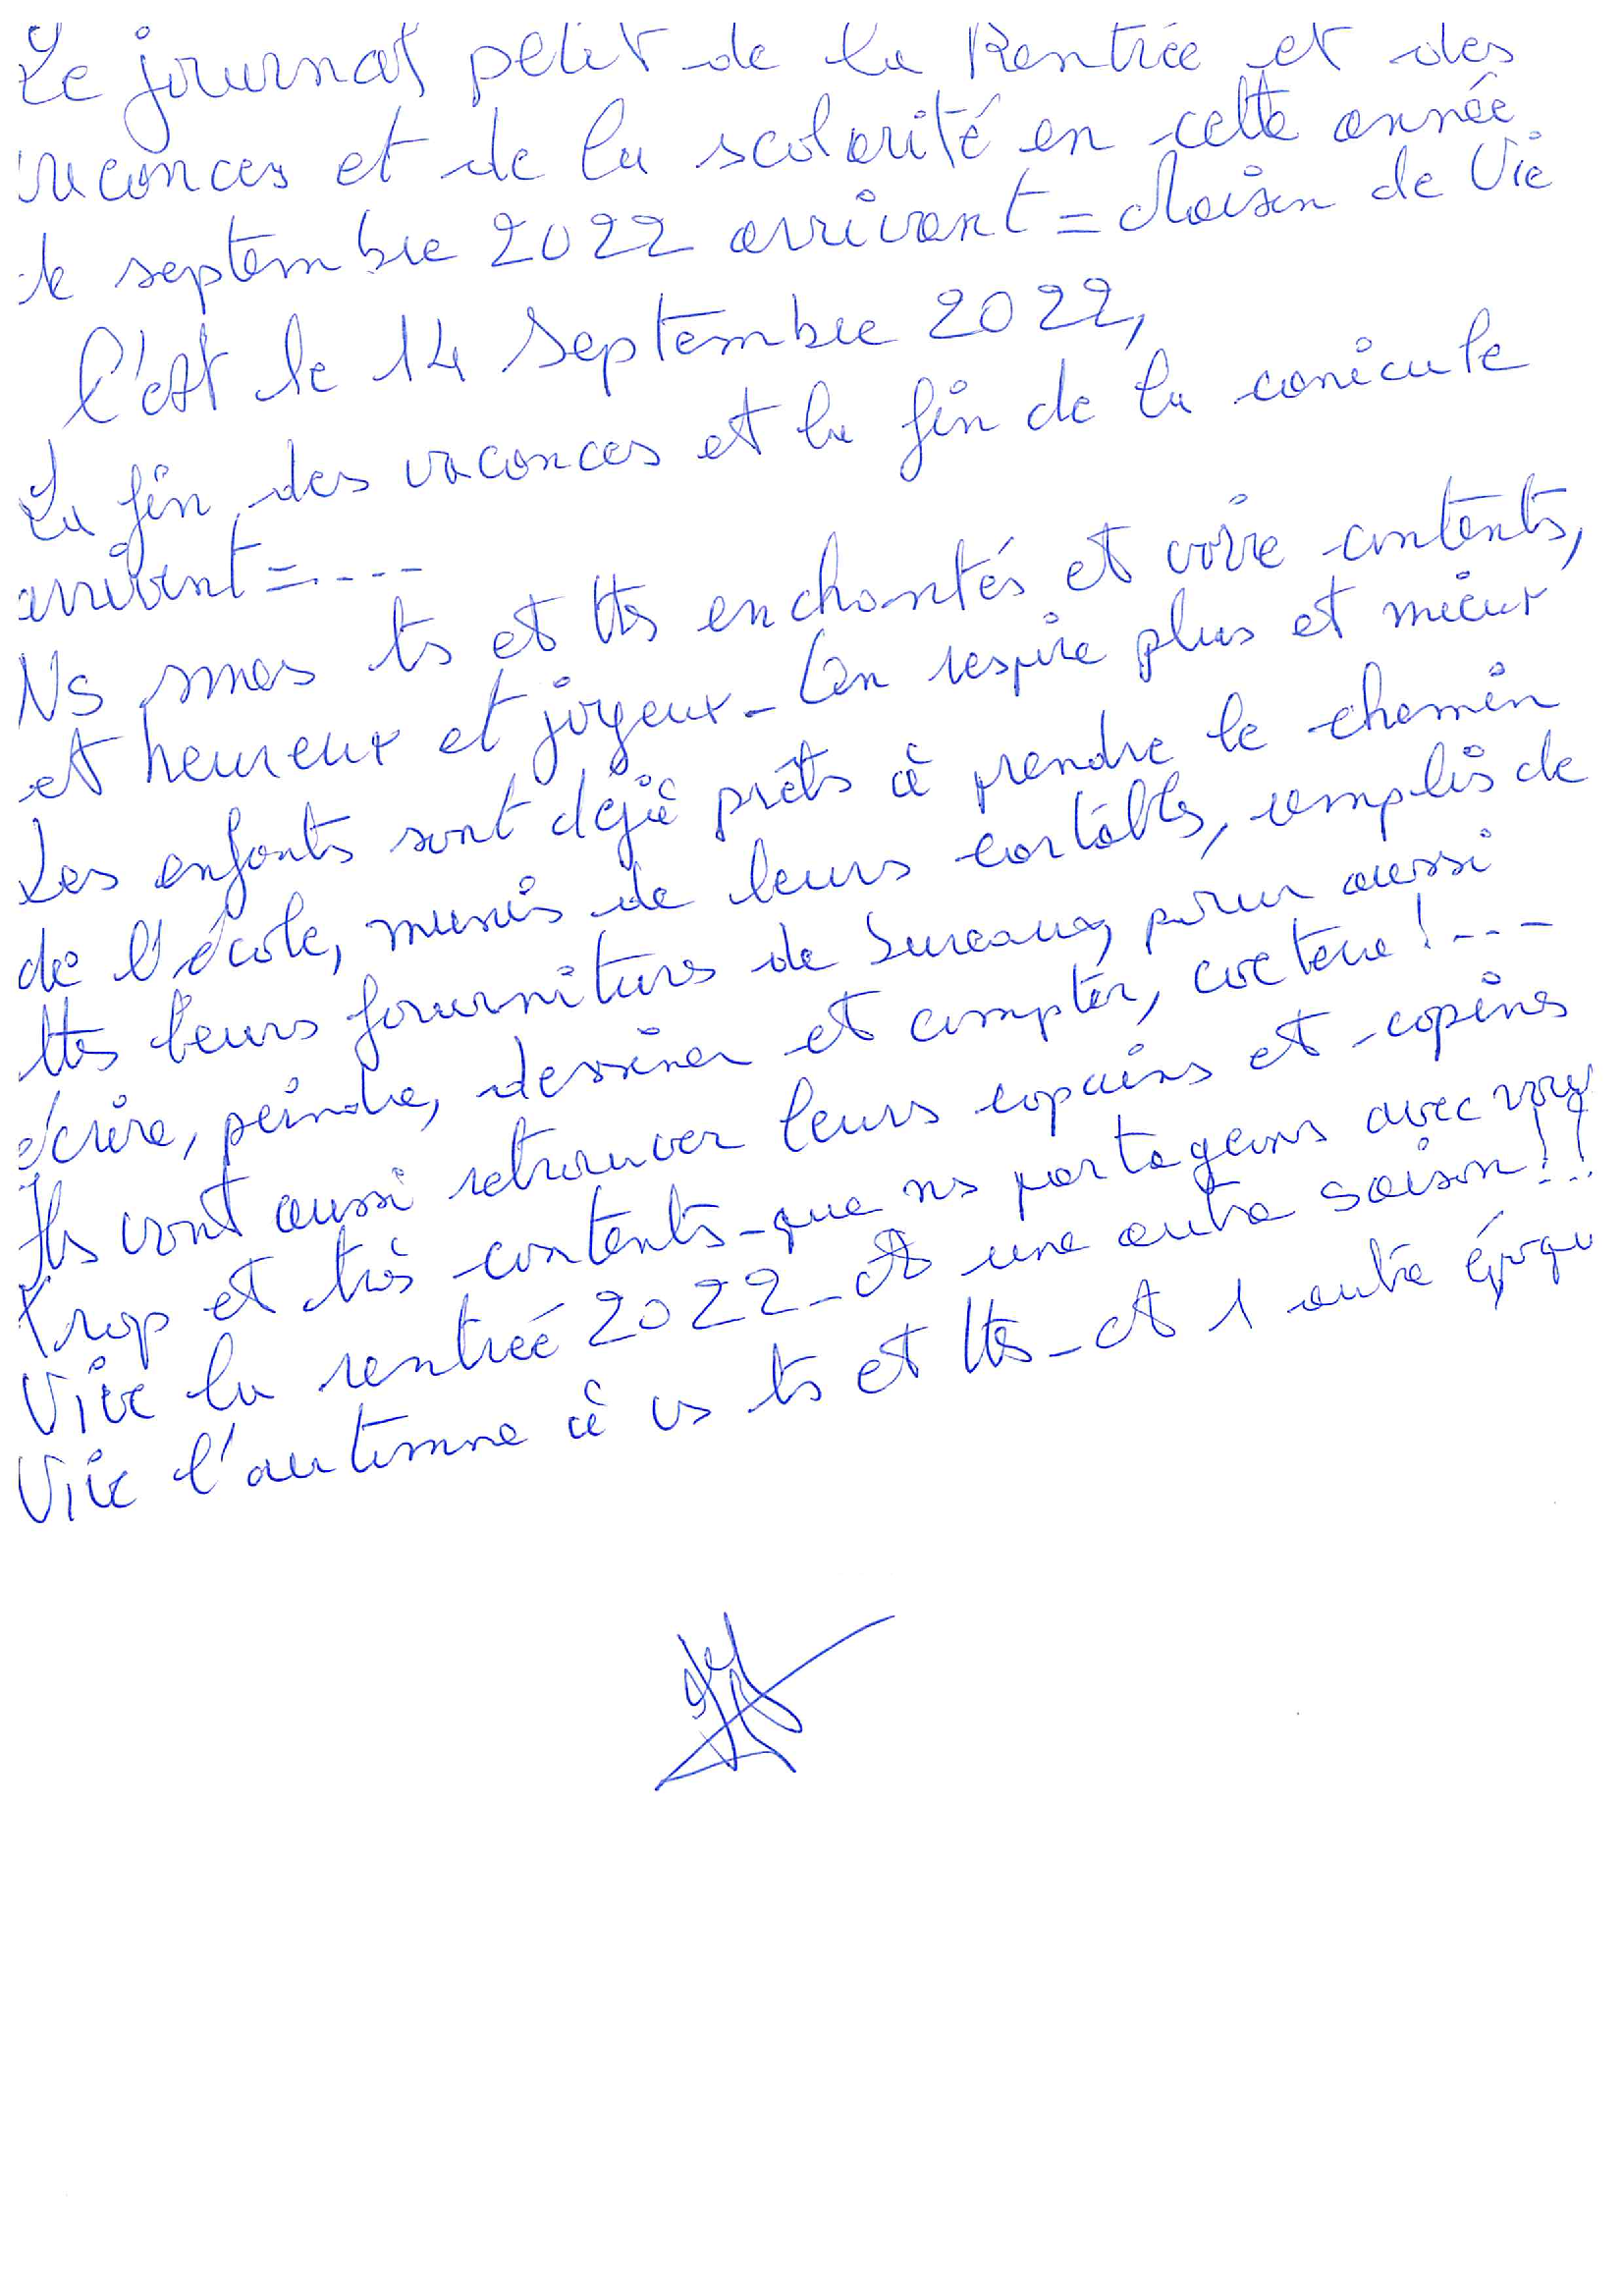 Le journal petit de la Rentrée et des
vacances et de la scolarité en cette année
de septembre 2022 arrivant = de Vie
C'est le 14 Septembre 2022,
La fin des vacances et la fin de la canicule
arrivent = . - - -
Ns smes ts et ttes enchantés et voire contents,
et heureux et joyeux - On respire plus et mieux
Les enfants sont déjà prêts à prendre le chemin
de l'école, munis de leurs cartables, remplis de
ttes leurs fournitures de bureaux, pour aussi
écrire, peindre, dessiner et compter, etc ! - - -
Ils vont aussi retrouver leurs copains et copines
trop et très contents - que ns partageons avec vous
Vive la rentrée 2022 - et une autre saison !!...
Vive l'automne à vs ts et ttes - et 1 autre époqu